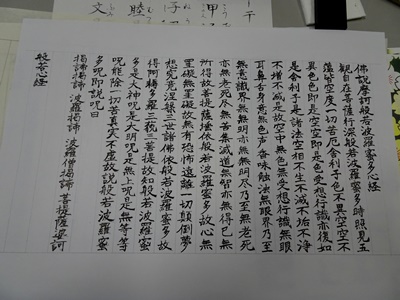 佛説摩訶般若波羅蜜多心経
観自在菩薩行深般若波羅蜜多時照見五
蘊皆空度一切苦厄舎利子色不異空空不
異色色即是空空即是色受想行識亦復如
是舎利子是諸法空相不生不滅不垢不浄
不増不減是故空中無色無受想行識無眼
耳鼻舌身意無色声香味触法無眼界乃至
無意識界無無明亦無無明尽乃至無老死
亦無老死尽無苦集滅道無智亦無得以無
所得故菩提薩埵依般若波羅蜜多故心無
罣礙無罣礙故無有恐怖遠離一切顛倒夢
想究竟涅槃三世諸佛依般若波羅蜜多故
得阿耨多羅三藐三菩提故知般若波羅蜜
多是大神呪是大明呪是無上呪是無等等
呪能除一切苦真実不虚故説般若波羅蜜
多呪即説呪曰
羯諦羯諦 波羅羯諦 波羅僧羯諦 菩提薩婆訶
般若心経